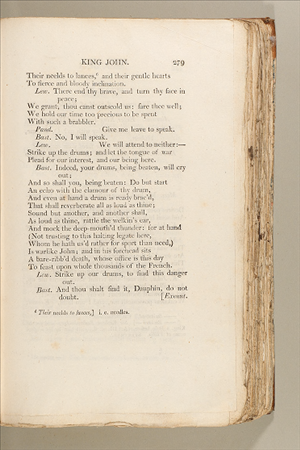 KING JOHN. 279
Their neelds to lances,⁶ and their gentle hearts
To fierce and bloody inclination.
Lew. There end thy brave, and turn thy face in
peace;
We grant, thou canst outscold us: fare thee well;
We hold our time too precious to be spent
With such a brabbler.
Pand. Give me leave to speak.
Bast. No, I will speak.
Lew. We will attend to neither:—
Strike up the drums; and let the tongue of war
Plead for our interest, and our being here.
Bast. Indeed, your drums, being beaten, will cry
out;
And so shall you, being beaten: Do but start
An echo with the clamour of thy drum,
And even at hand a drum is ready brac'd,
That shall reverberate all as loud as thine;
Sound but another, and another shall,
As loud as thine, rattle the welkin's ear,
And mock the deep-mouth'd thunder: for at hand
(Not trusting to this halting legate here,
Whom he hath us'd rather for sport than need,)
Is warlike John; and in his forehead sits
A bare-ribb'd death, whose office is this day
To feast upon whole thousands of the French.
Lew. Strike up our drums, to find this danger
out.
Bast. And thou shalt find it, Dauphin, do not
doubt. [Exeunt.
⁶ Their neelds to lances,] i. e. needles.